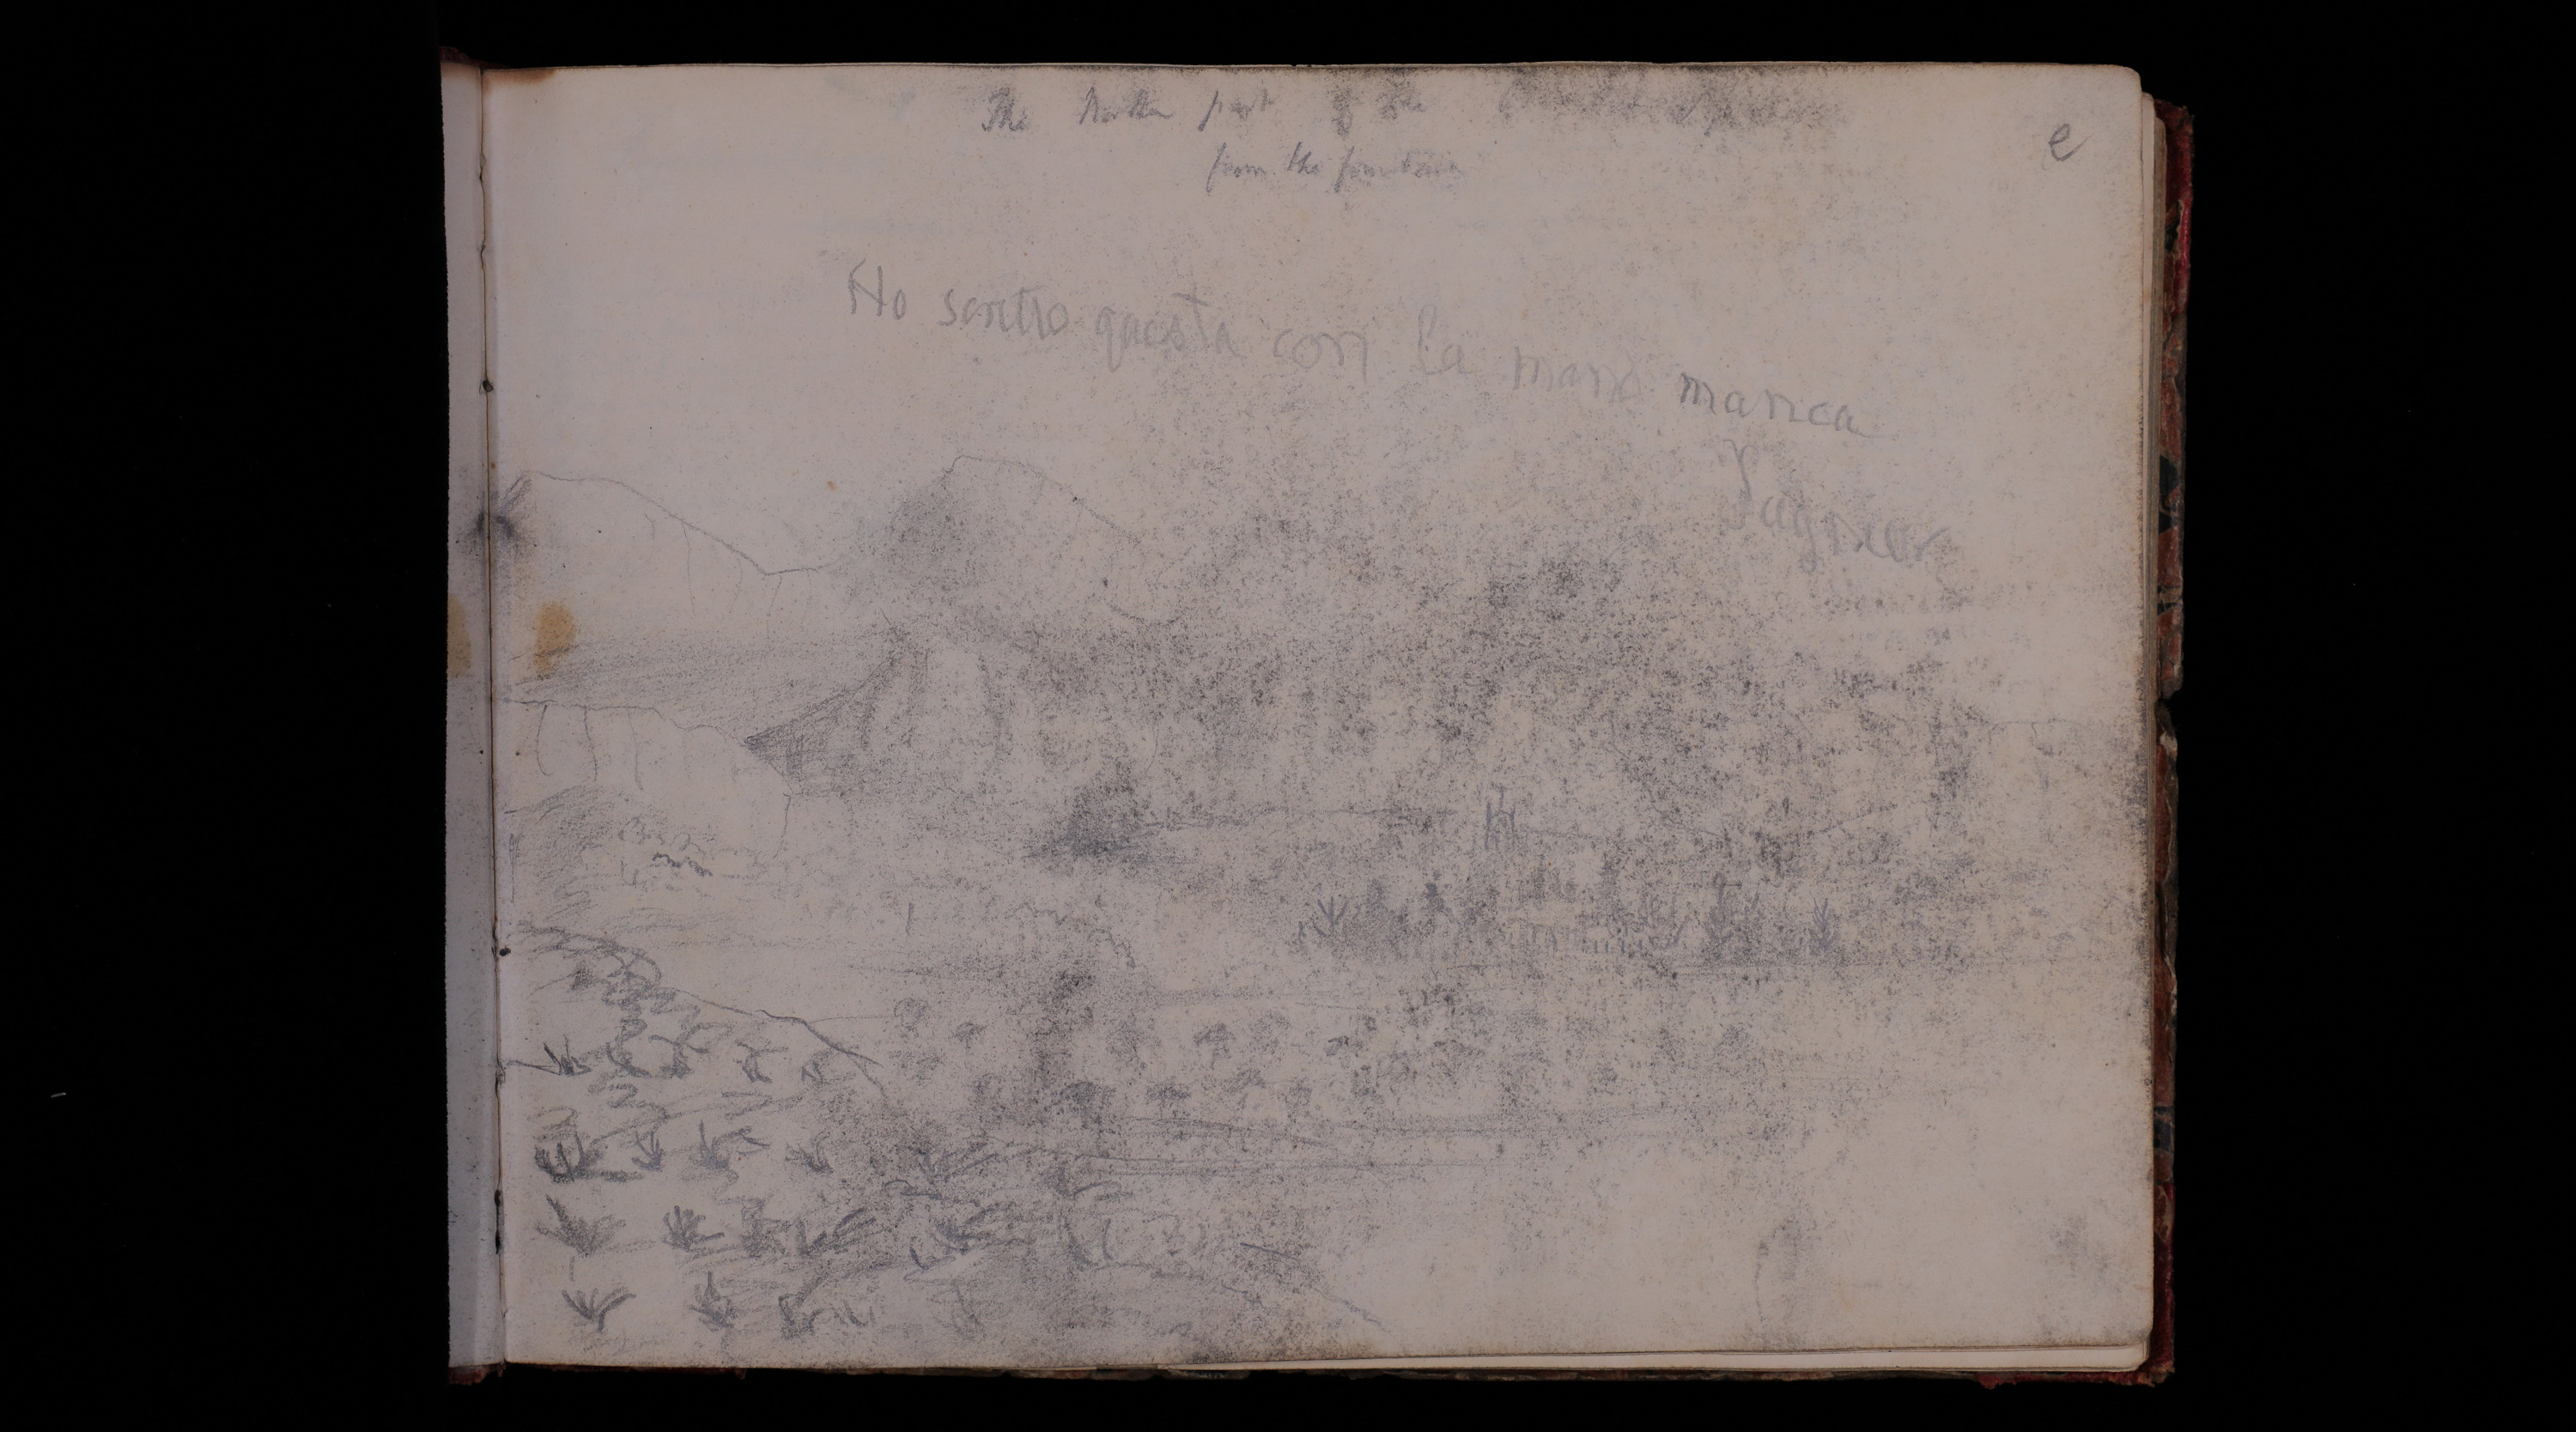 The North part of the
from the fountain
e
Ho scritto questa con la mano manca